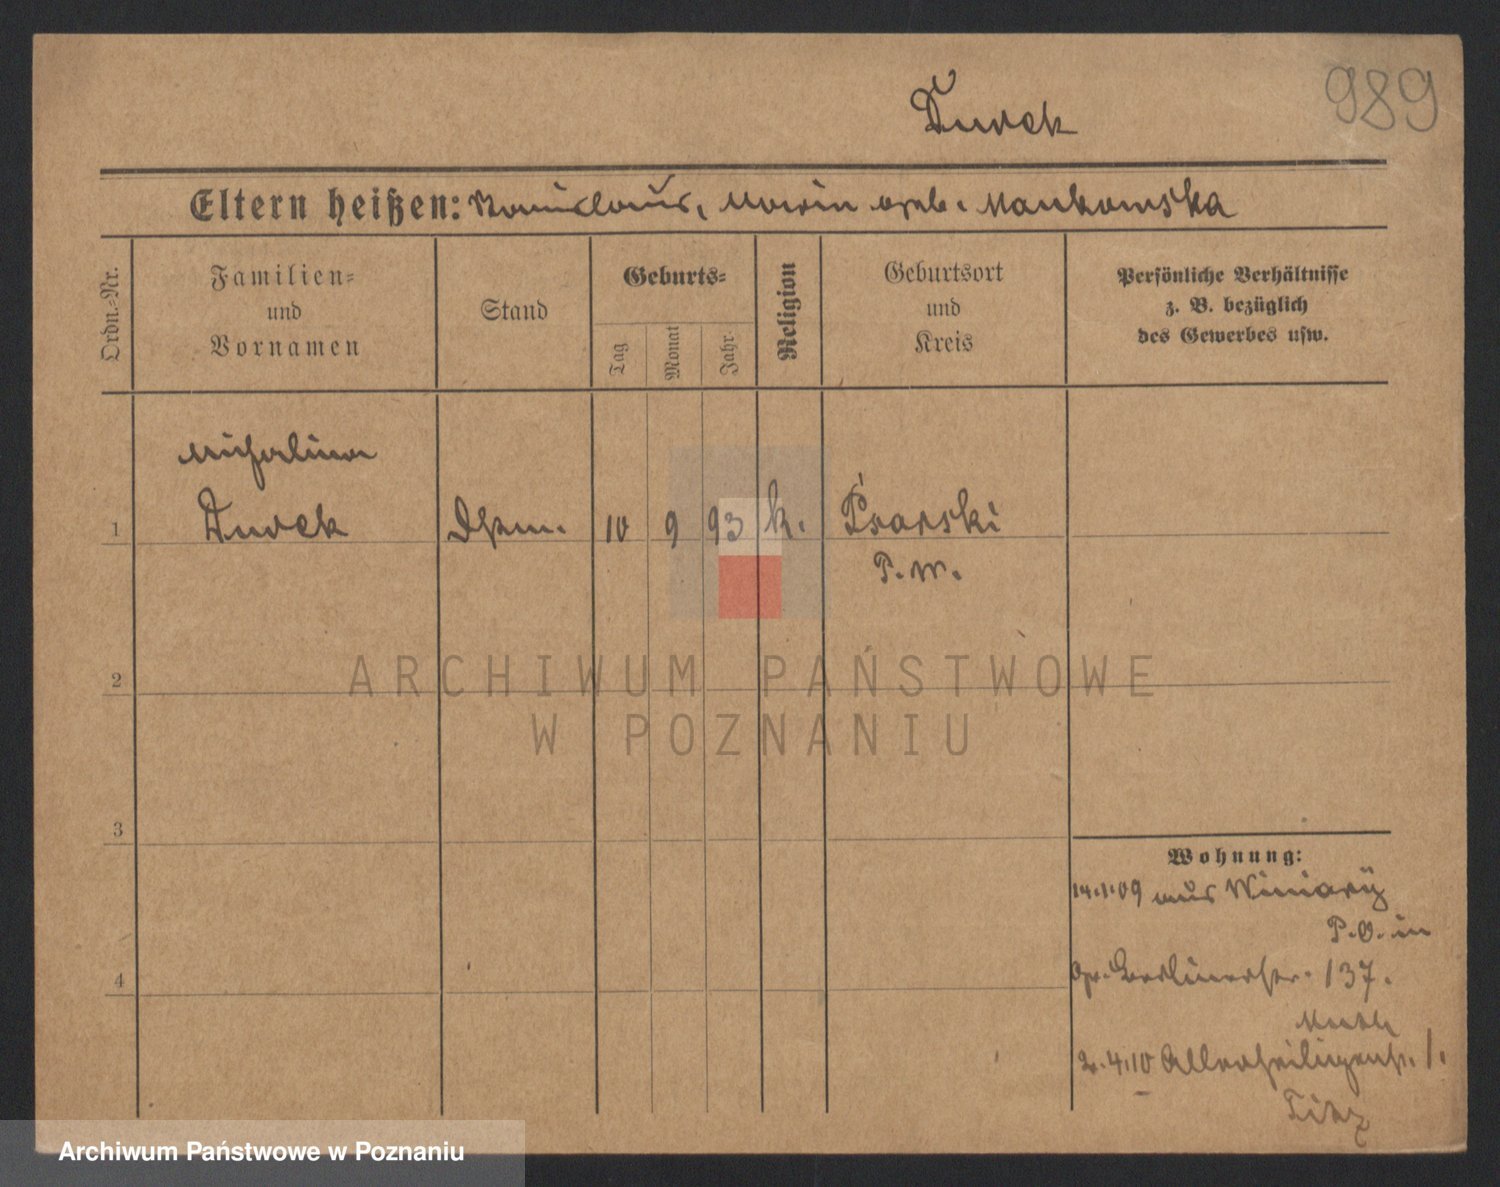 989
Eltern heißen: Stanislaus, Marie geb. Mankowska
Ordn.-Nr.
Familien-
und
Vornamen
Stand
Geburts-
Tag
Monat
Jahr
Religion
Geburtsort
und
Kreis
Persönliche Verhältnisse
z. B. bezüglich
des Gewerbes usw.
Michalina
1
10
9
93
k.
Psarski
P. W.
2
3
4
Wohnung:
14.1.09 aus Winiary
P.O. in
Gr. Berlinerstr. 137.
2.4.10 Allerheiligenstr. 1.
ARCHIWUM PAŃSTWOWE
W POZNANIU
Archiwum Państwowe w Poznaniu